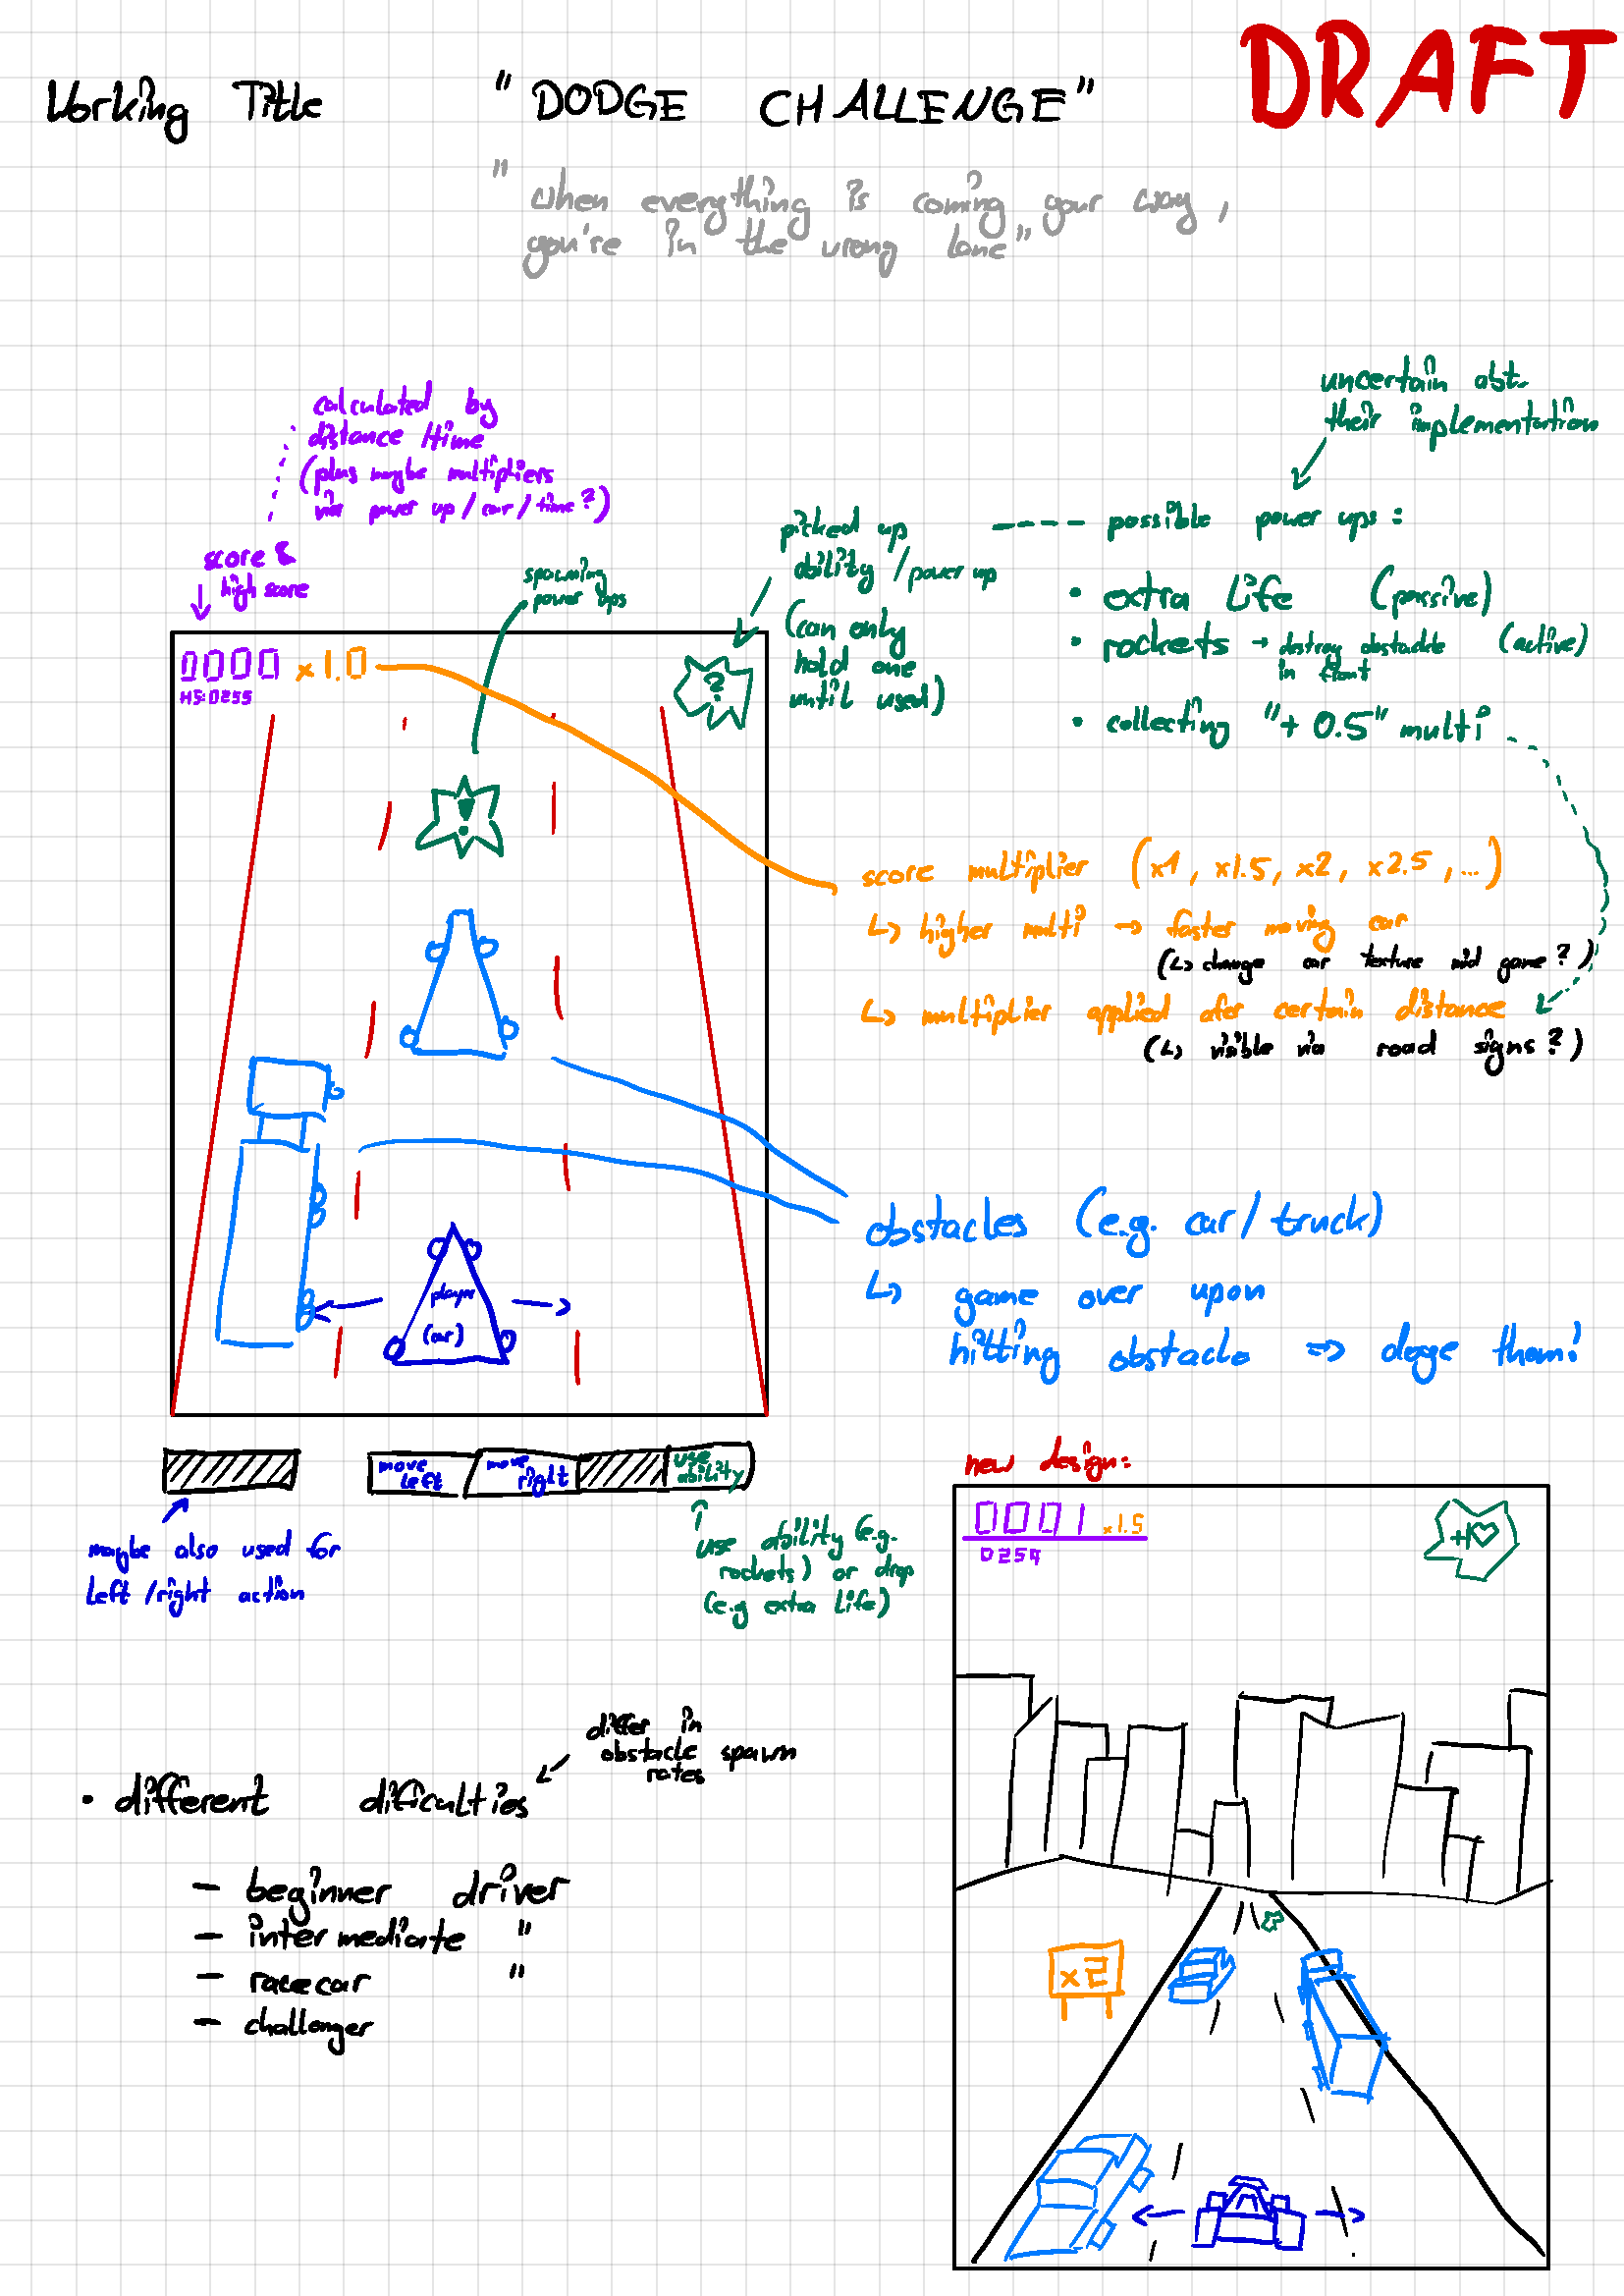 DRAFT
Working Title "DODGE CHALLENGE"
"when everything is coming your way,
you're in the wrong lane"
calculated by
distance/time
(plus maybe multipliers
via power up/car/time?)
score &
high score
spawning
power ups
picked up
ability/power up
(can only
hold one
until used)
uncertain abt.
their implementation
possible power ups:
• extra life (passive)
• rockets → destroy obstacle (active)
in front
• collecting "+ 0.5" multi
0000 x1.0
HS:0255
?
!
score multiplier (x1, x1.5, x2, x2.5, ...)
↳ higher multi → faster moving car
(↳ change car texture mid game?)
↳ multiplier applied afer certain distance
(↳ visible via road signs?)
obstacles (e.g. car/truck)
↳ game over upon
hitting obstacle => doge them!
player
(car)
move
left
move
right
use
ability
maybe also used for
left/right action
use ability (e.g.
rockets) or drop
(e.g extra life)
new design:
0001 x1.5
0254
+1
x2
differ in
obstacle spawn
rates
• different dificulties
- beginner driver
- intermediate "
- racecar "
- challenger